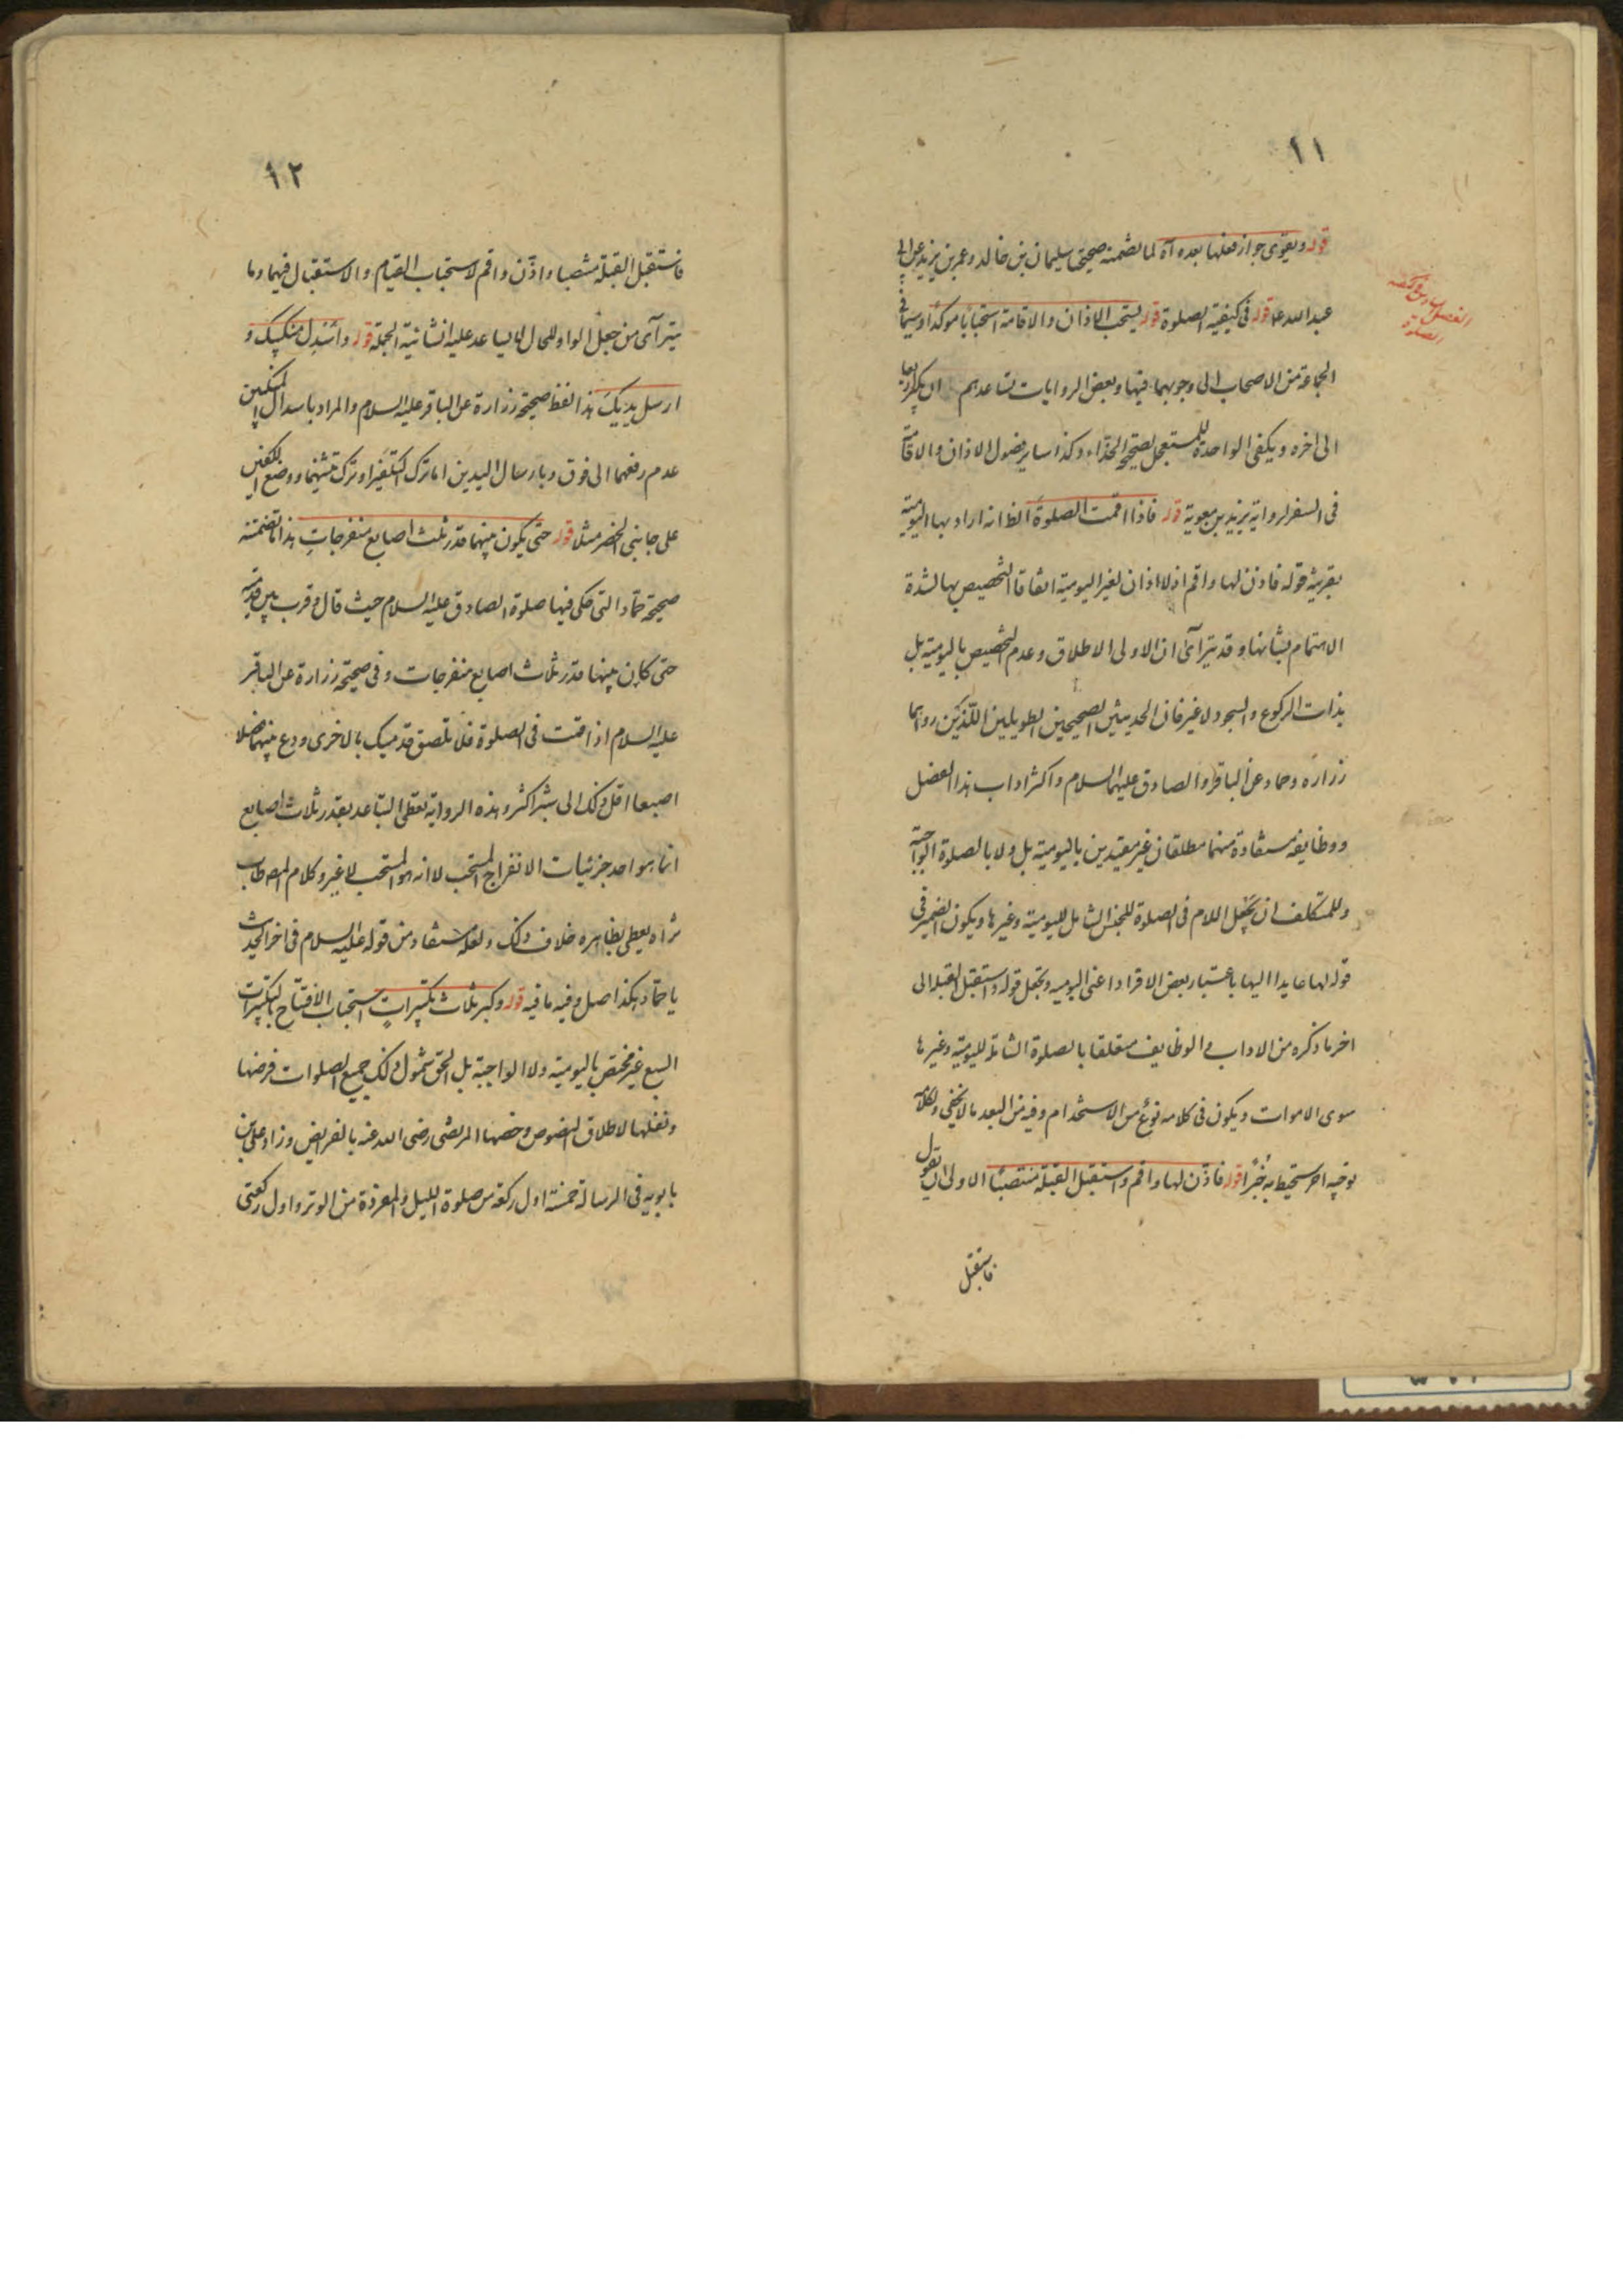 ١١
قوله ويقوى جواز فعلها بعده آه لما تضمنه صحيحتي سليمان بن خالد وعمر بن يزيد عن ابي
الفصل السادس في كيفية الصلوة
عبد الله ع قوله في كيفية الصلوة قوله يستحب الاذان والاقامة استحبابا موكدا وسيما في
الجماعة من الاصحاب الى وجوبهما فيها وبعض الروايات تساعدهم ان يكبر اربعا
الى اخره ويكفي الواحدة للمستعجل لصحيح الحذاء وكذا ساير فصول الاذان والاقامة
في السفر لرواية يزيد بن معوية قوله فاذا اقمت الصلوة الظ انه اراد بها اليومية
بقرينة قوله فاذن لها واقم اذ لا اذان لغير اليومية اتفاقا التخصيص بها لشدة
الاهتمام بشانها وقد يترآى ان الاولى الاطلاق وعدم التخصيص باليومية بل
بذات الركوع والسجود لا غير فان الحديثين الصحيحين الطويلين اللذين رواهما
زرارة وحماد عن الباقر والصادق عليهما السلام واكثر اداب هذا الفصل
ووظايفه مستفادة منهما مطلقان غير مقيدين باليومية بل ولا بالصلوة الواجبة
وللمتكلف ان يجعل اللام في الصلوة للجنس الشامل لليومية وغيرها ويكون الضمير في
قوله لها عايدا اليها باعتبار بعض الافراد اعني اليومية ويجعل قوله واستقبل القبلة الى
اخر ما ذكره من الاداب والوظايف متعلقا بالصلوة الشاملة لليومية وغيرها
سوى الاموات ويكون في كلامه نوع من الاستخدام وفيه من البعد ما لا يخفى ولكلامه
توجيه اخر ستحيط به خبرا قوله فاذن لها واقم واستقبل القبلة منتصبا الاولى ان يقول
فاستقبل
١٢
فاستقبل القبلة منتصبا واذن واقم لاستحباب القيام والاستقبال فيهما وما
يترآى من جعل الواو للحال لا يساعد عليه انشائية الجملة قوله واسدل منكبيك و
ارسل يديك هذا لفظ صحيحة زرارة عن الباقر عليه السلام والمراد باسدال المنكبين
عدم رفعهما الى فوق وبارسال اليدين اما ترك التكفير او ترك ثنيهما ووضع الكفين
على جانبي الخصر مثلا قوله حتى يكون بينهما قدر ثلث اصابع منفرجات هذا ما تضمنته
صحيحة حماد التي حكى فيها صلوة الصادق عليه السلام حيث قال وقرب بين قدميه
حتى كان بينهما قدر ثلاث اصابع منفرجات وفي صحيحة زرارة عن الباقر
عليه السلام اذا قمت في الصلوة فلا تلصق قدميك بالاخرى ودع بينهما فصلا
اصبعا اقل ذلك الى شبر اكثر وهذه الرواية تعطي التباعد بقدر ثلاث اصابع
انما هو احد جزئيات الانفراج المستحب لا انه هو المستحب لا غير وكلام المص طاب
ثراه يعطي بظاهره خلاف ذلك ولعله مستفاد من قوله عليه السلام في اخر الحديث
يا حماد هكذا صل وفيه ما فيه قوله وكبر ثلاث تكبيرات استحباب الافتتاح بالتكبيرات
السبع غير مختص باليومية ولا الواجبة بل الحق شمول ذلك جميع الصلوات فرضها
ونفلها لاطلاق النصوص وخصها المرتضى رضي الله عنه بالفرايض وزاد علي بن
بابويه في الرسالة خمسة اول ركعة من صلوة الليل والمفردة من الوتر واول ركعتي